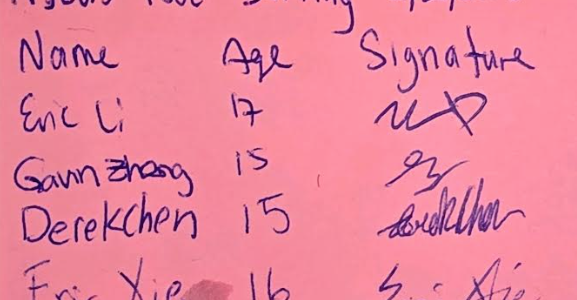 Name Age Signature
Eric Li 17
Gavin Zhang 15
Derekchen 15 Derekchen
Eric Xie 16 Eric Xie